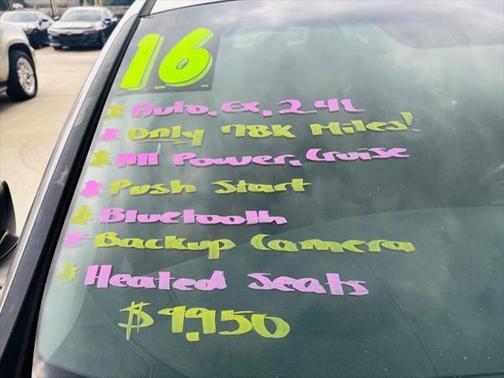 16
Auto, Ex, 2.4L
Only 78K Miles!
All Power, Cruise
Push Start
Bluetooth
Backup Camera
Heated Seats
$9,950